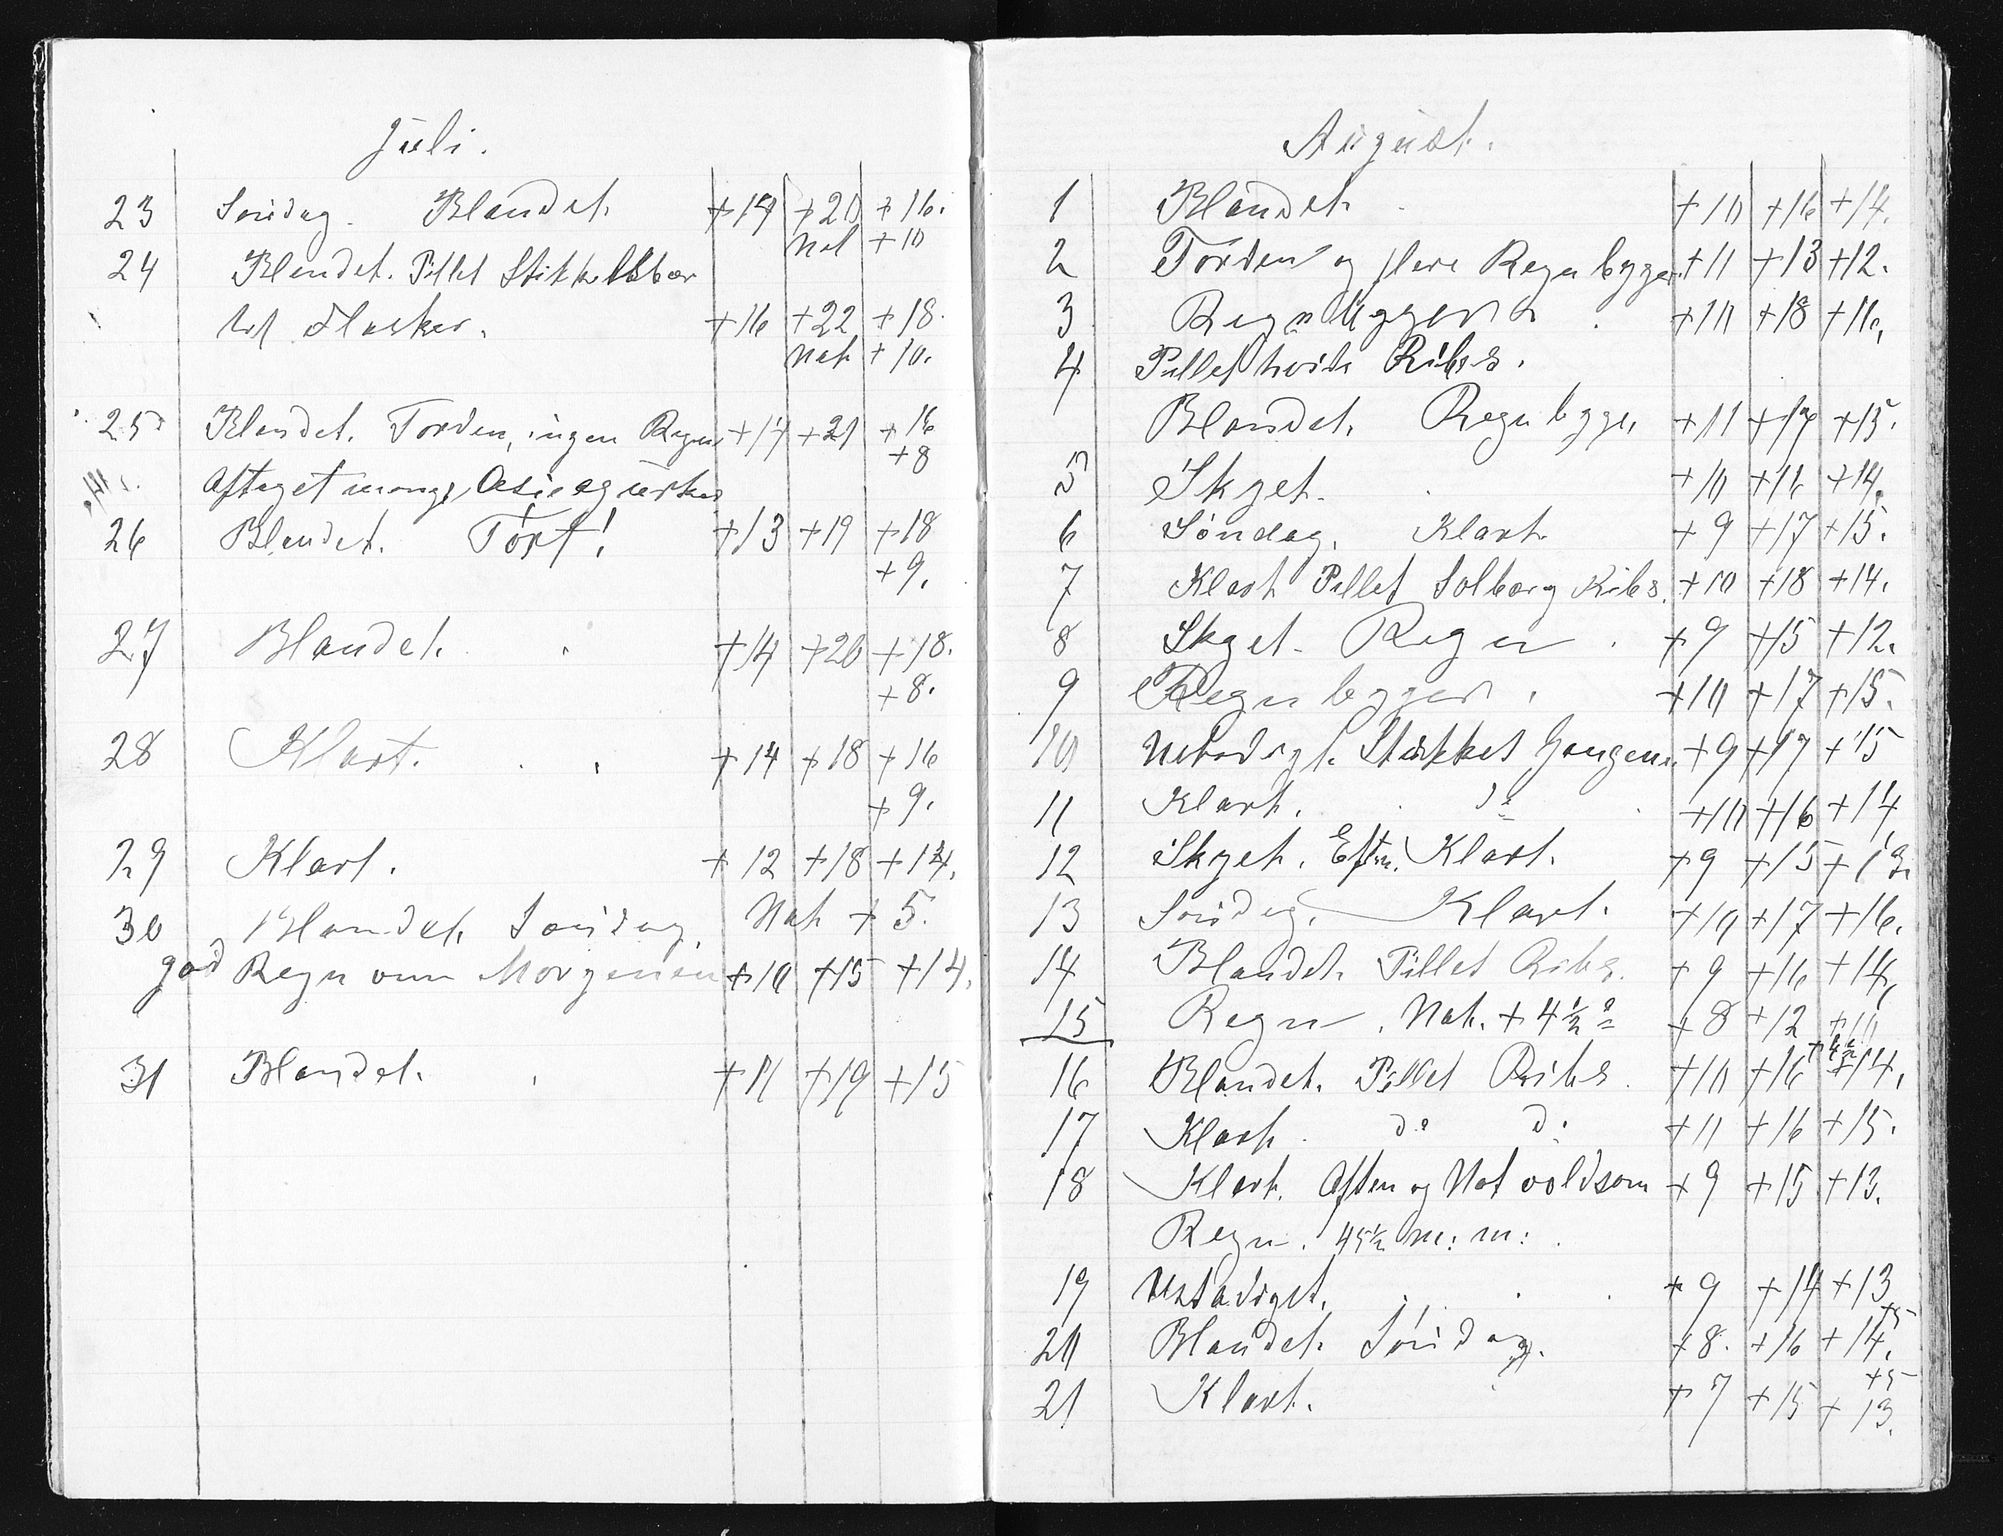 Juli.
23 Søndag. Blandet. +14 +20 +16.
Nat +10
24 Blandet. Pillet Stikkelsbær
til Flasker. +16 +22 +18.
Nat +10.
25 Blandet. Torden, ingen Regn +17 +21 +16
+8
Aftaget mange Asieagurker
26 Blandet. Tørt! +13 +19 +18
+9.
27 Blandet. +14 +20 +18.
+8.
28 Klart. +14 +18 +16
+9.
29 Klart. +12 +18 +14.
30 Blandet. Søndag. Nat +5.
god Regn om Morgenen +10 +15 +14.
31 Blandet. +11 +19 +15
August.
1 Blandet. +10 +16 +14.
2 Torden og flere Regnbyger +11 +13 +12.
3 Regnbyger +10 +18 +16.
4 Pillet hvide Ribs.
Blandet. Regnbyge. +11 +17 +15.
5 Skyet. +10 +16 +14.
6 Søndag. Klart. +9 +17 +15.
7 Klart Pillet Solbær og Ribs. +10 +18 +14.
8 Skyet. Regn. +9 +15 +12.
9 Regnbyger. +10 +17 +15.
10 Ustadigt. Stukket Gangene. +9 +17 +15
11 Klart. do +10 +16 +14
12 Skyet. Eftm. Klart. +9 +15 +13.
13 Søndag. Klart. +10 +17 +16.
14 Blandet. Pillet Ribs. +9 +16 +14.
15 Regn. Nat. +4½° +8 +12 +10
16 Blandet. Pillet Ribs. +10 +16 +14.
17 Klart. do do +11 +16 +15.
18 Klart. Aften og Nat voldsom +9 +15 +13.
Regn. 45½ m:m:.
19 Ustadiget. +9 +14 +13
+5
20 Blandet. Søndag. +8. +16 +14.
+5
21 Klart. +7 +15 +13.